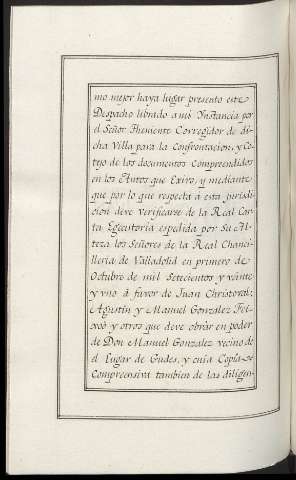 mo mejor haya lugar presento este
Despacho librado a mi Ynstancia por
el Señor Theniente Corregidor de di-
cha Villa para la Confrontacion, y Co-
tejo de los documentos Comprendidos
en los Autos que Exivo, y mediante
que por lo que respecta á esta jurisdi-
cion deve Verificarse de la Real Car-
ta Egecutoria espedida por Su Al-
teza los Señores de la Real Chanci-
lleria de Valladolid en primero de
Octubre de mil Setecientos y veinte
y vno á favor de Juan Christoval;
Agustin y Manuel Gonzalez Fei-
xoó y otros que deve obrár en poder
de Don Manuel Gonzalez vecino de
el Lugar de Gudes, y cuia Copia
Compreensiva tambien de las diligen-